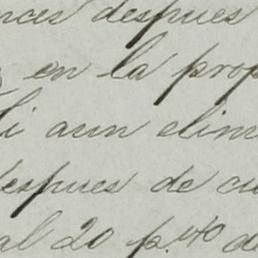 nces despues
en la prop
li aun elim
despues de cu
al 20 p.% de